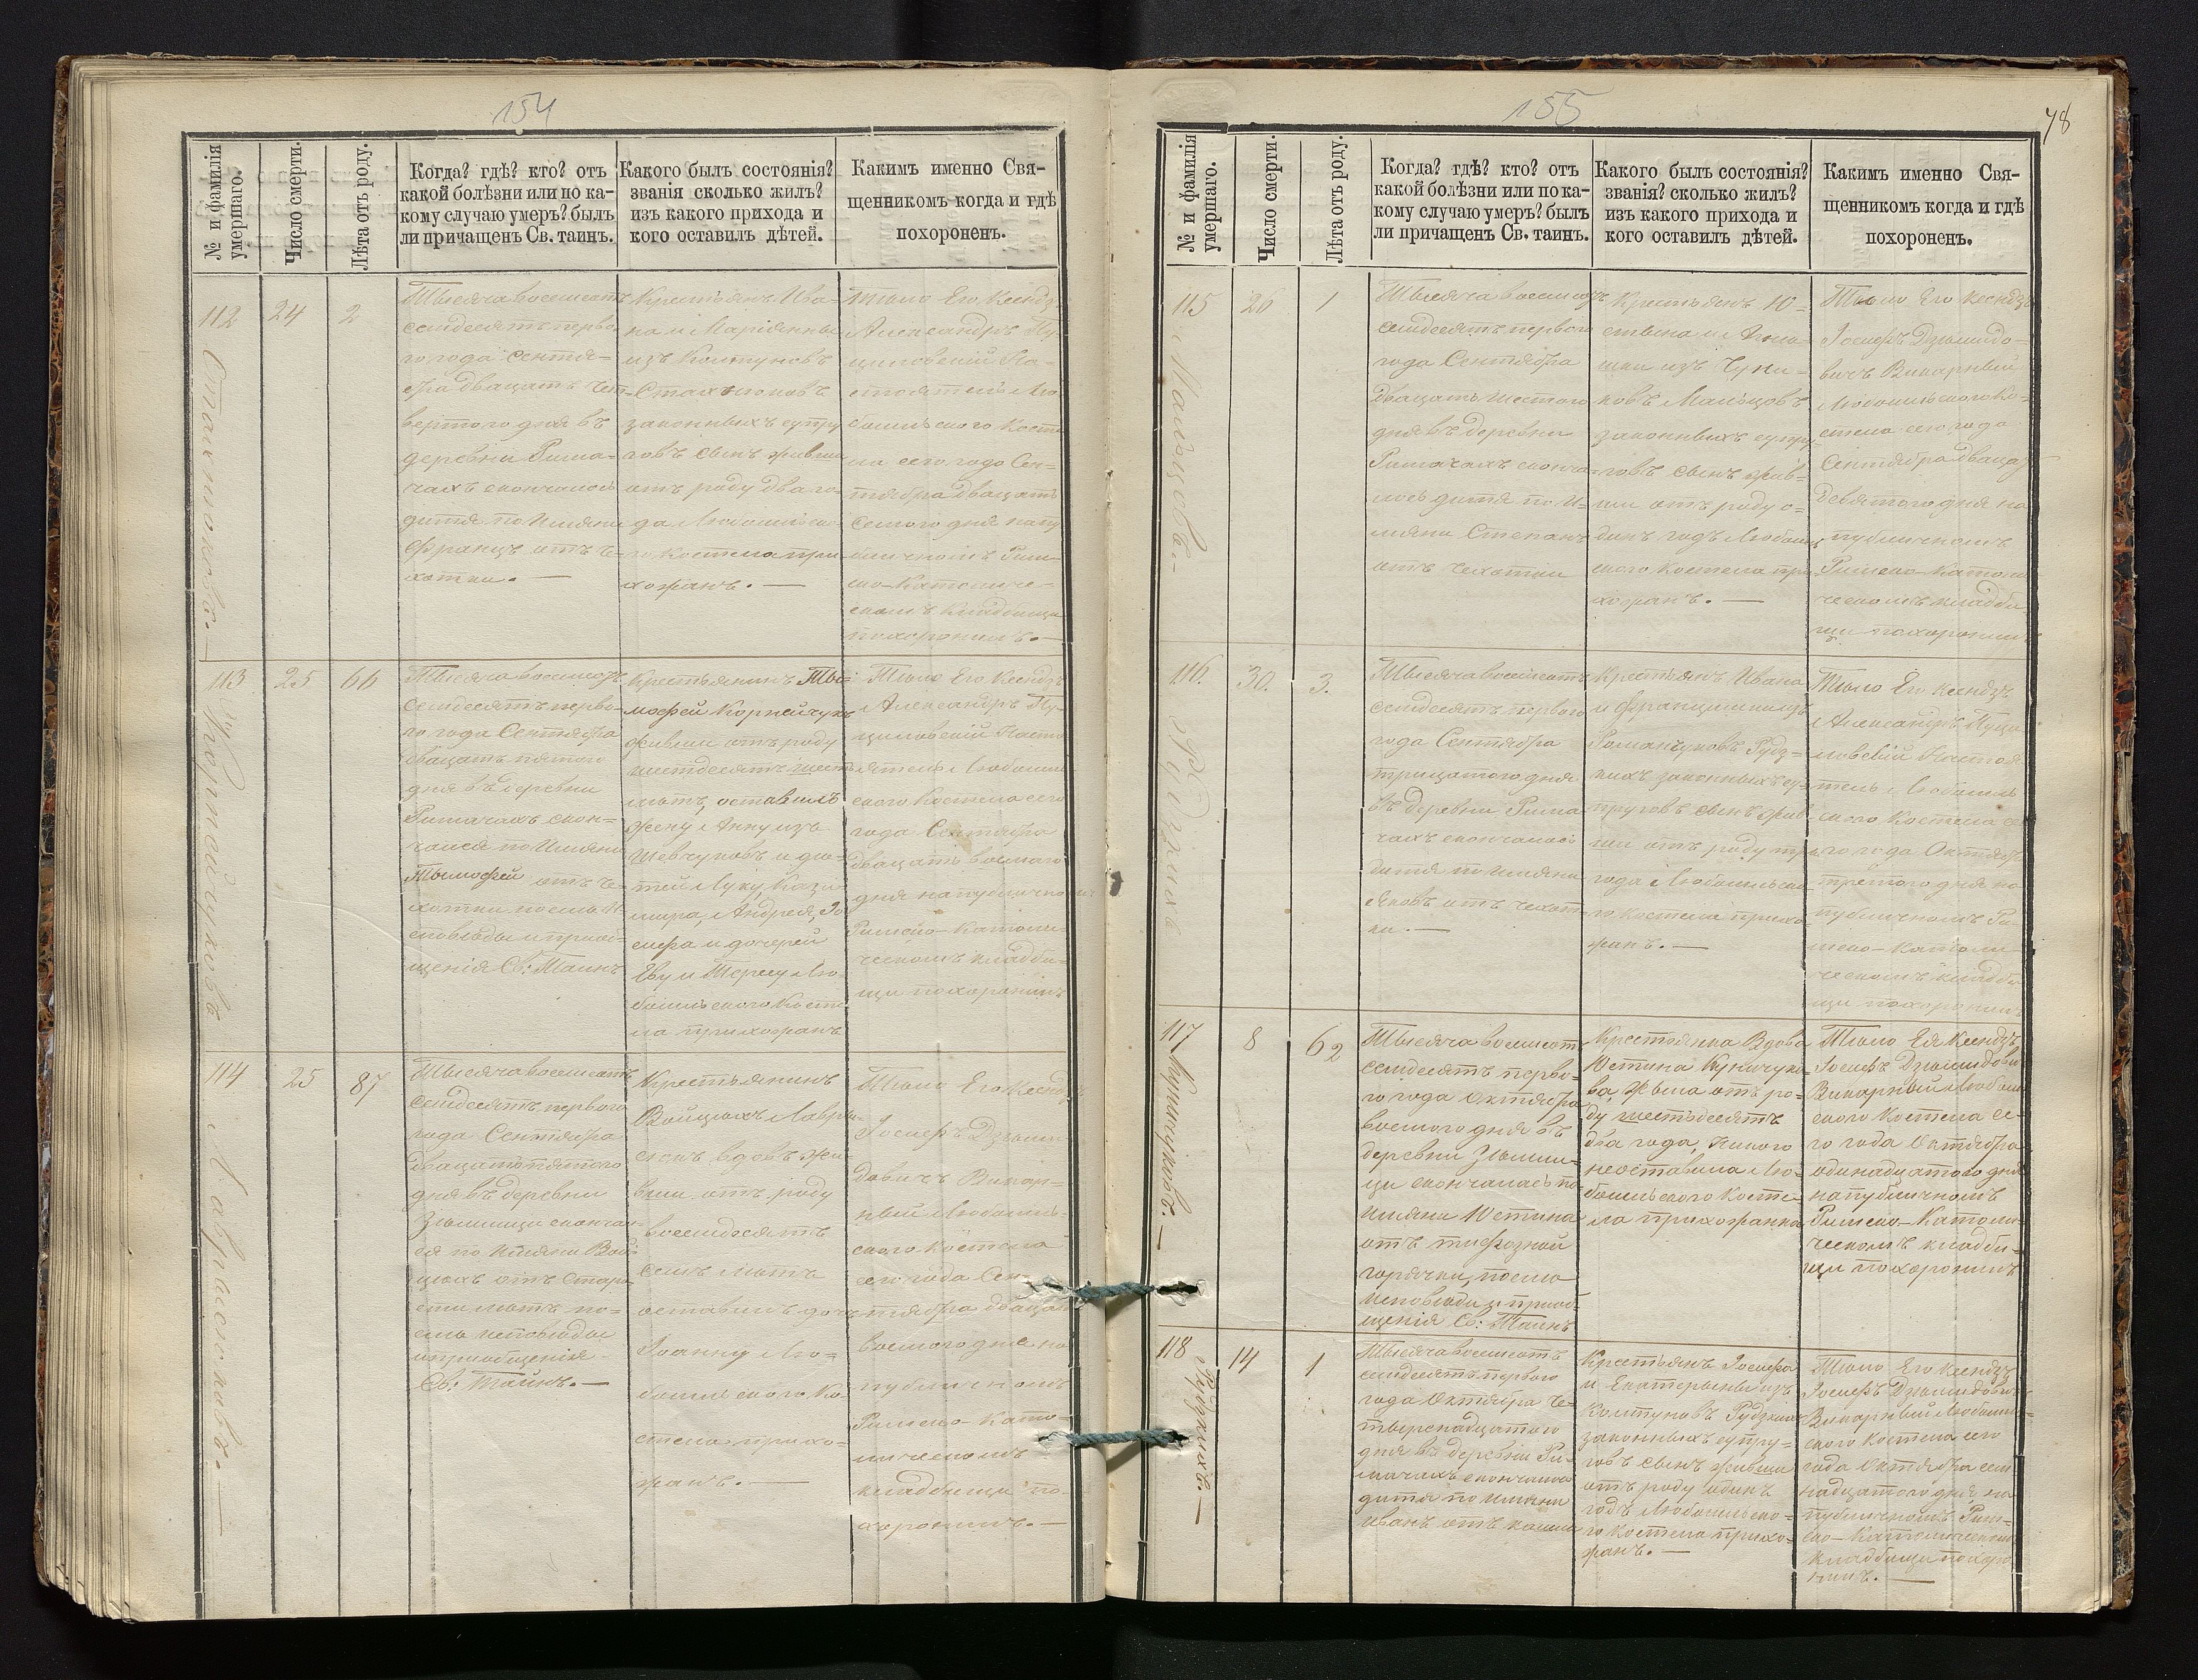 154
№ и фамилія
умершаго.
Число смерти.
Лѣта отъ роду.
Когда? гдѣ? кто? отъ
какой болѣзни или по ка-
кому случаю умеръ? былъ
ли причащенъ Св. таинъ.
Какого былъ состоянія?
званія сколько жилъ?
изъ какого прихода и
кого оставилъ дѣтей.
Каким­ъ именно Свя-
щенникомъ когда и гдѣ
похороненъ.
112
24
2
Тысяча восемсотъ
семдесятъ перво-
го года Сентя-
бра двацать чет-
вертого дня въ
деревни Рима-
чахъ скончалось
дитя по имяни
Францъ отъ че-
хотки. —
Крестьянъ Ива-
на и Маріянны
изъ Колтуновъ
законныхъ супру
говъ сынъ живши
отъ роду два го-
да Любомльска-
го Костела при-
хожанъ. —
Тѣло Его Ксендзъ
Александръ
Любо
мльского Косте
ла сего года Сен-
тября двацать
семого дня на пу
бличномъ Рим-
ско-Католиче-
скомъ кладбищи
похоронилъ. —
113
25
66
Корнейчуковъ
Тысяча восемсотъ
семдесятъ перво-
го года Сентября
двацать пятого
дня въ деревни
Римачахъ скон-
чался по имяни
Тымофей отъ че-
хотки после и-
споведы и приоб-
щенія Св: Таинъ
Крестьянинъ Ты-
мофей Корнейчукъ
живши отъ роду
шестдесятъ шест
лѣтъ, оставилъ
жену Анну изъ
Шевчуковъ и дѣ-
тей Луку, Кази
мира, Андрея, Іо
сифа и дочерей
Еву и Терезу Лю-
бомльского Косте-
ла прихожанъ
Тѣло Его Ксендзъ
Александръ
Любомль
ского Костела сего
года Сентября
двацать восмого
дня на публичномъ
Римско-Католи-
ческомъ кладби-
щи похоронилъ
114
25
87
Тысяча восемсотъ
семдесятъ первого
года Сентября
двацать пятого
дня въ деревни
скончал
ся по имяни Вой-
цѣхъ отъ старо
сти лѣтъ по-
слѣ исповѣды
и приобщенія
Св: Таинъ. —
Крестьянинъ
Войцѣхъ
вдовъ жи
вши отъ роду
восемдесятъ
семъ лѣтъ
оставилъ дочь
Іоанну Лю-
бомльского Ко-
стела прихо-
жанъ. —
Тѣло Его Ксендзъ
Іосифъ Дземи
довичъ Викар-
ный Любомль-
ского Костела
сего года Сен-
тября двацать
восмого дня на
публичномъ
Римско-Като-
лическомъ
кладбищи по-
хоронилъ. —
155
78
№ и фамилія
умершаго.
Число смерти.
Лѣта отъ роду.
Когда? гдѣ? кто? отъ
какой болѣзни или по ка-
кому случаю умеръ? былъ
ли причащенъ Св. таинъ.
Какого былъ состоянія?
званія? сколько жилъ?
изъ какого прихода и
кого оставилъ дѣтей.
Какимъ именно Свя-
щенникомъ когда и гдѣ
похороненъ.
115
26
1
Мальцовъ. —
Тысяча восемсотъ
семдесятъ первого
года Сентября
двацать шестого
дня въ деревни
Римачахъ сконча-
лось дитя по и-
мяни Степанъ
отъ чехотки
Крестьянъ Ю-
изъ
Мальцовъ
законныхъ супру-
говъ сынъ жив-
ши отъ роду о-
динъ годъ Любомль
ского Костела при
хожанъ. —
Тѣло Его Ксендзъ
Іосифъ Дземидо-
вичъ Викарный
Любомльского Ко-
стела сего года
Сентября двацать
девятого дня на
публичномъ
Римско-Католи
ческомъ кладби
щи похоронилъ
116.
30.
3.
Рудзкихъ
Тысяча восемсотъ
семдесятъ первого
года Сентября
трицатого дня
въ деревни Рима
чахъ скончалось
дитя по имяни
Яковъ отъ чехот-
ки. —
Крестьянъ Ивана
и Францишки изъ
Романчуковъ Рудз-
кихъ законныхъ су-
пруговъ сынъ жив
ши отъ роду три
года Любомльска
го Костела прихо
жанъ. —
Тѣло Его Ксендзъ
Александръ
Любомль
ского Костела се
го года Октября
третого дня на
публичномъ Ри-
мско-Католи
ческомъ кладби
щи похоронилъ
117
8
62
Куничуковъ. —
Тысяча восемсотъ
семдесятъ перво-
го года Октября
восмого дня въ
деревни
скончалась по
имяни Юстина
отъ тифозной
горячки, после
исповѣды и приоб-
щенія Св: Таинъ
Крестьянка Вдова
Юстина Куничуко-
ва, жила отъ ро-
ду шестьдесятъ
два года, никого
неоставила Лю-
бомльского Косте-
ла прихожанка
Тѣло Ея Ксендзъ
Іосифъ Дземидовичъ
Викарный Любомль
ского Костела се-
го года Октября
одинадцатого дня
на публичномъ
Римско-Католи-
ческомъ кладби-
щи похоронилъ
118
14
1
Рудзкихъ. —
Тысяча восемсотъ
семдесятъ первого
года Октября че-
тырнадцатого
дня въ деревни Ри-
мачахъ скончалось
дитя по имяни
Иванъ отъ кашля
Крестьянъ Іосифа
и Екатерины изъ
Колтуновъ Рудзкихъ
законныхъ супру-
говъ сынъ живши
отъ роду одинъ
годъ Любомльско-
го Костела прихо-
жанъ. —
Тѣло Его Ксендзъ
Іосифъ Дземидовичъ
Викарный Любомль-
ского Костела сего
года Октября сем
надцатого дня на
публичномъ Рим-
ско-Католическомъ
кладбищи похоро
нилъ. —